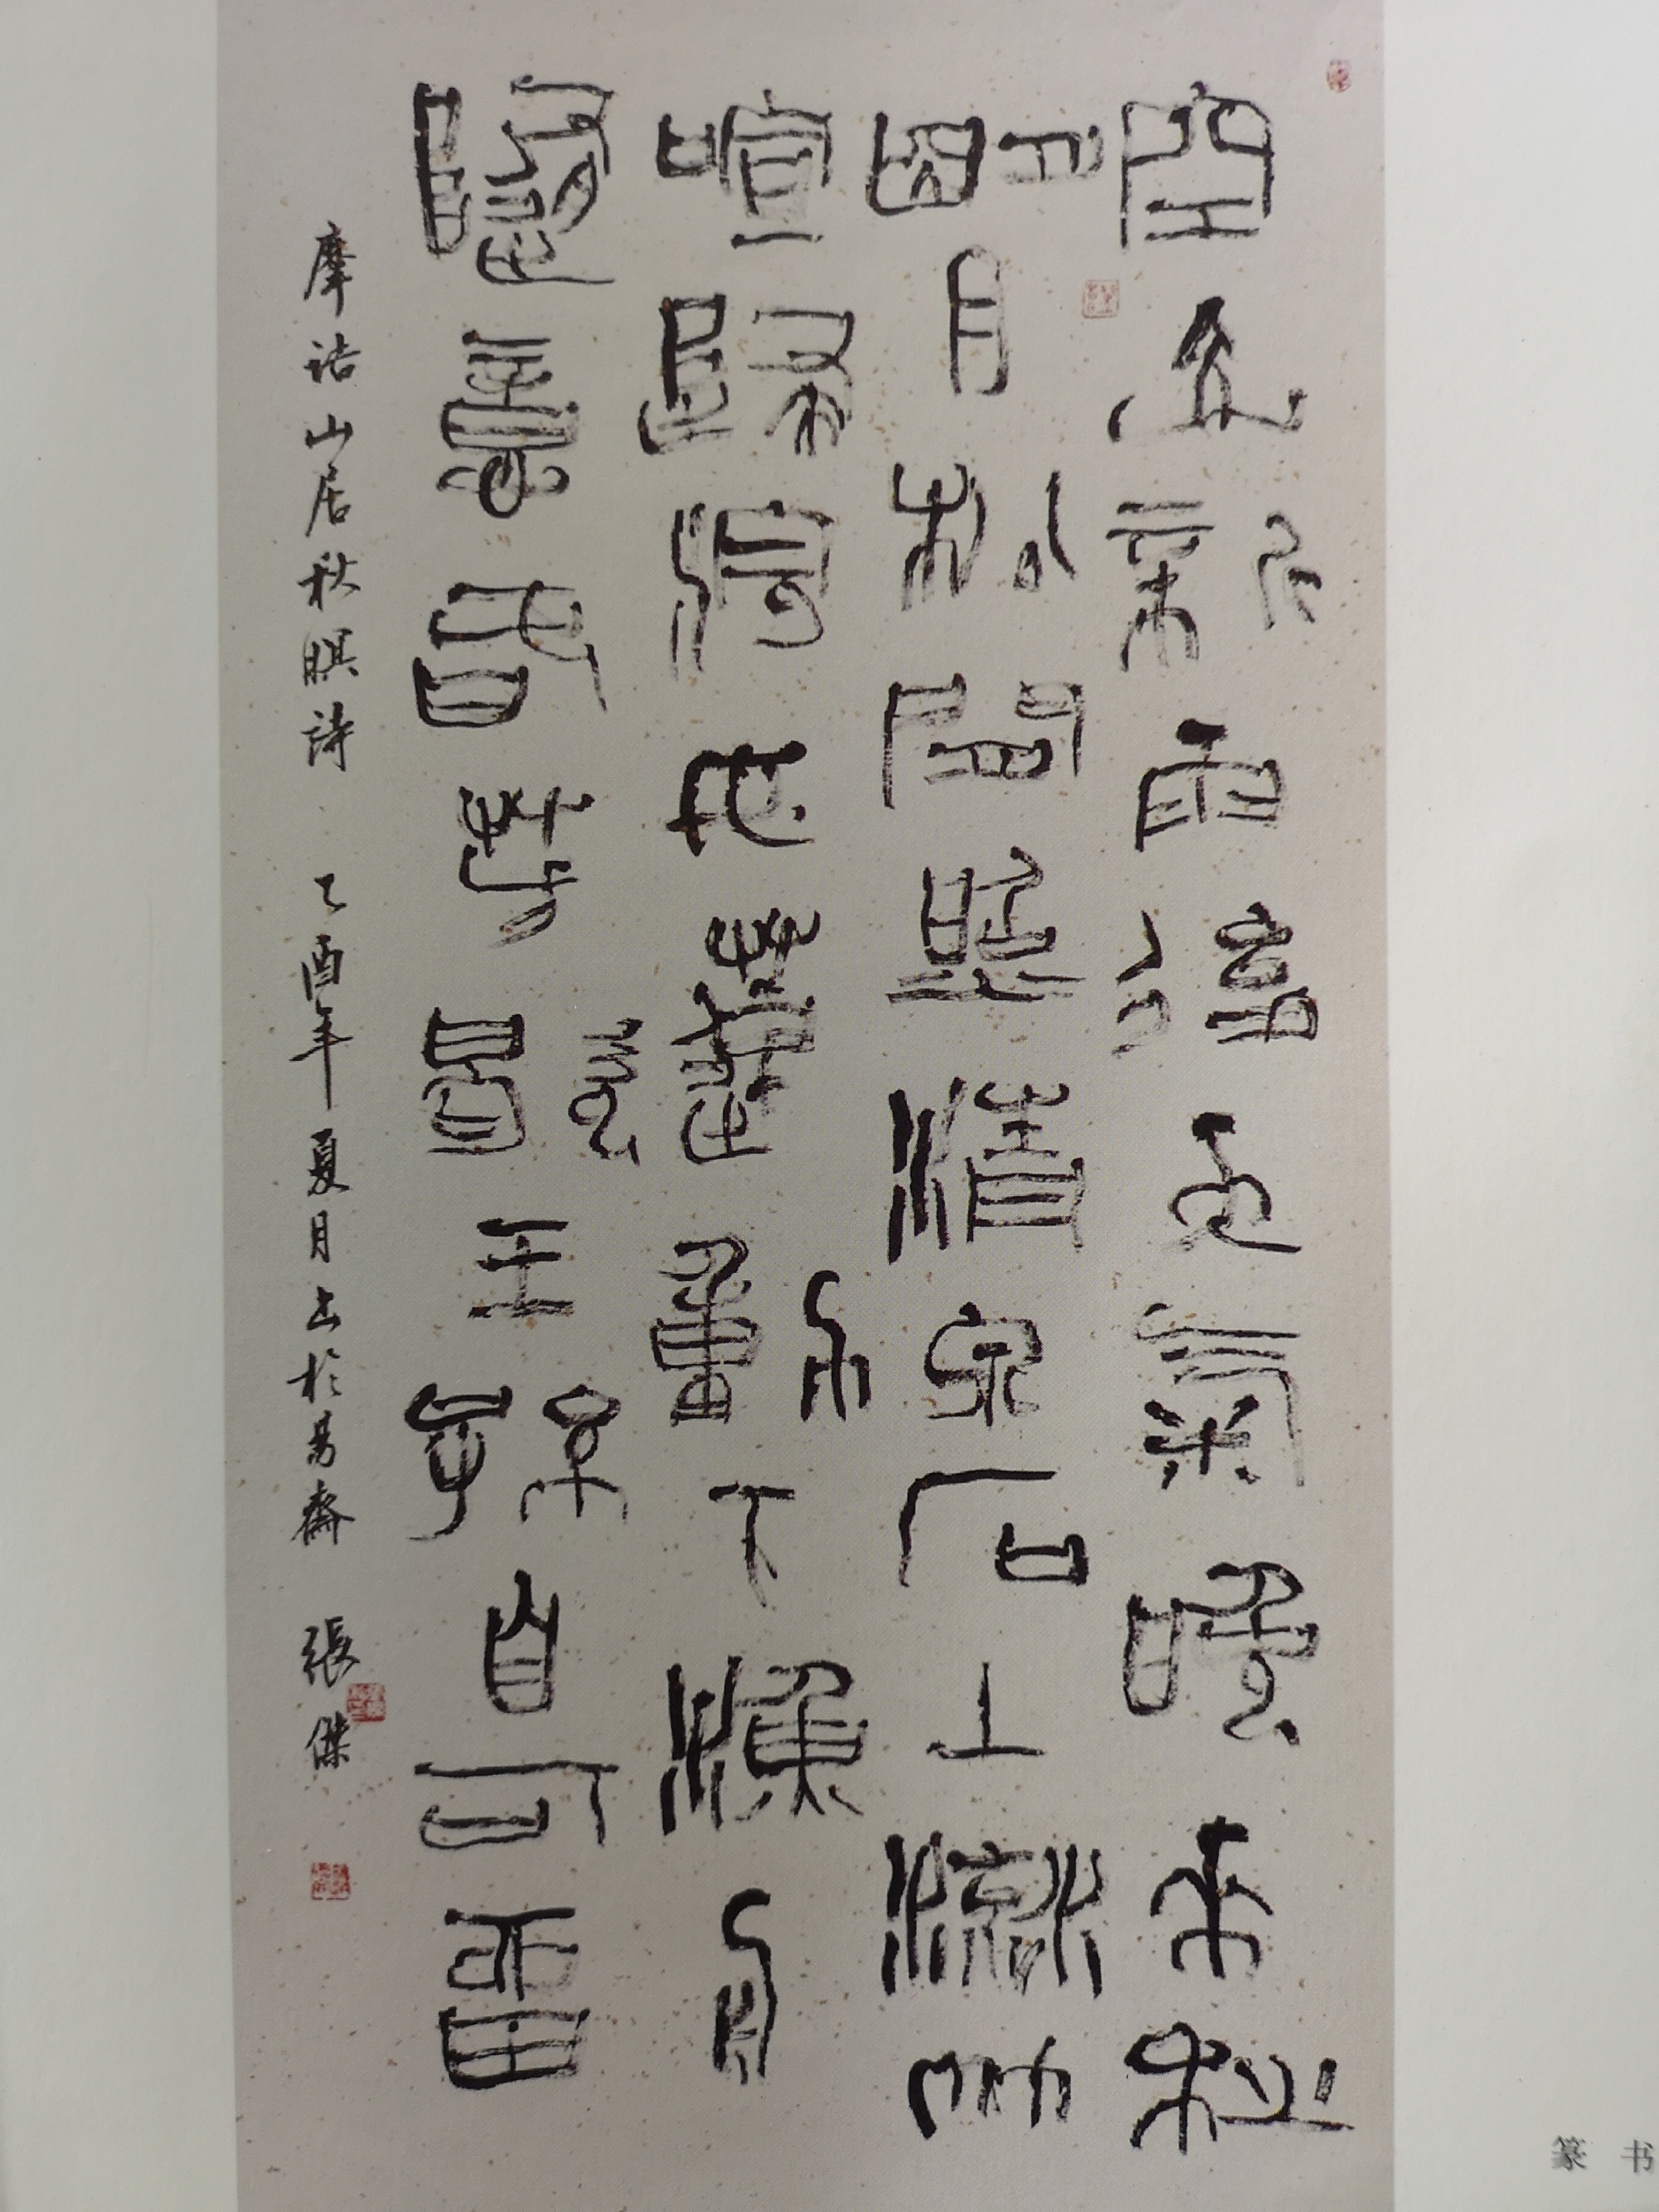 空山新雨後天氣晚來秋
明月松間照清泉石上流竹
喧歸浣女蓮動下漁舟
隨意春芳歇王孫自可留
摩诘山居秋暝詩 乙酉年夏月书於易齋 張傑
篆 书